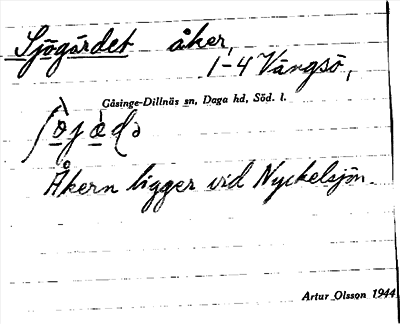 Sjögärdet åker,
1-4 Vängsö,
Gåsinge-Dillnäs sn, Daga hd, Söd. l.
Åkern ligger vid Nyckelsjön.
Artur Olsson 1944